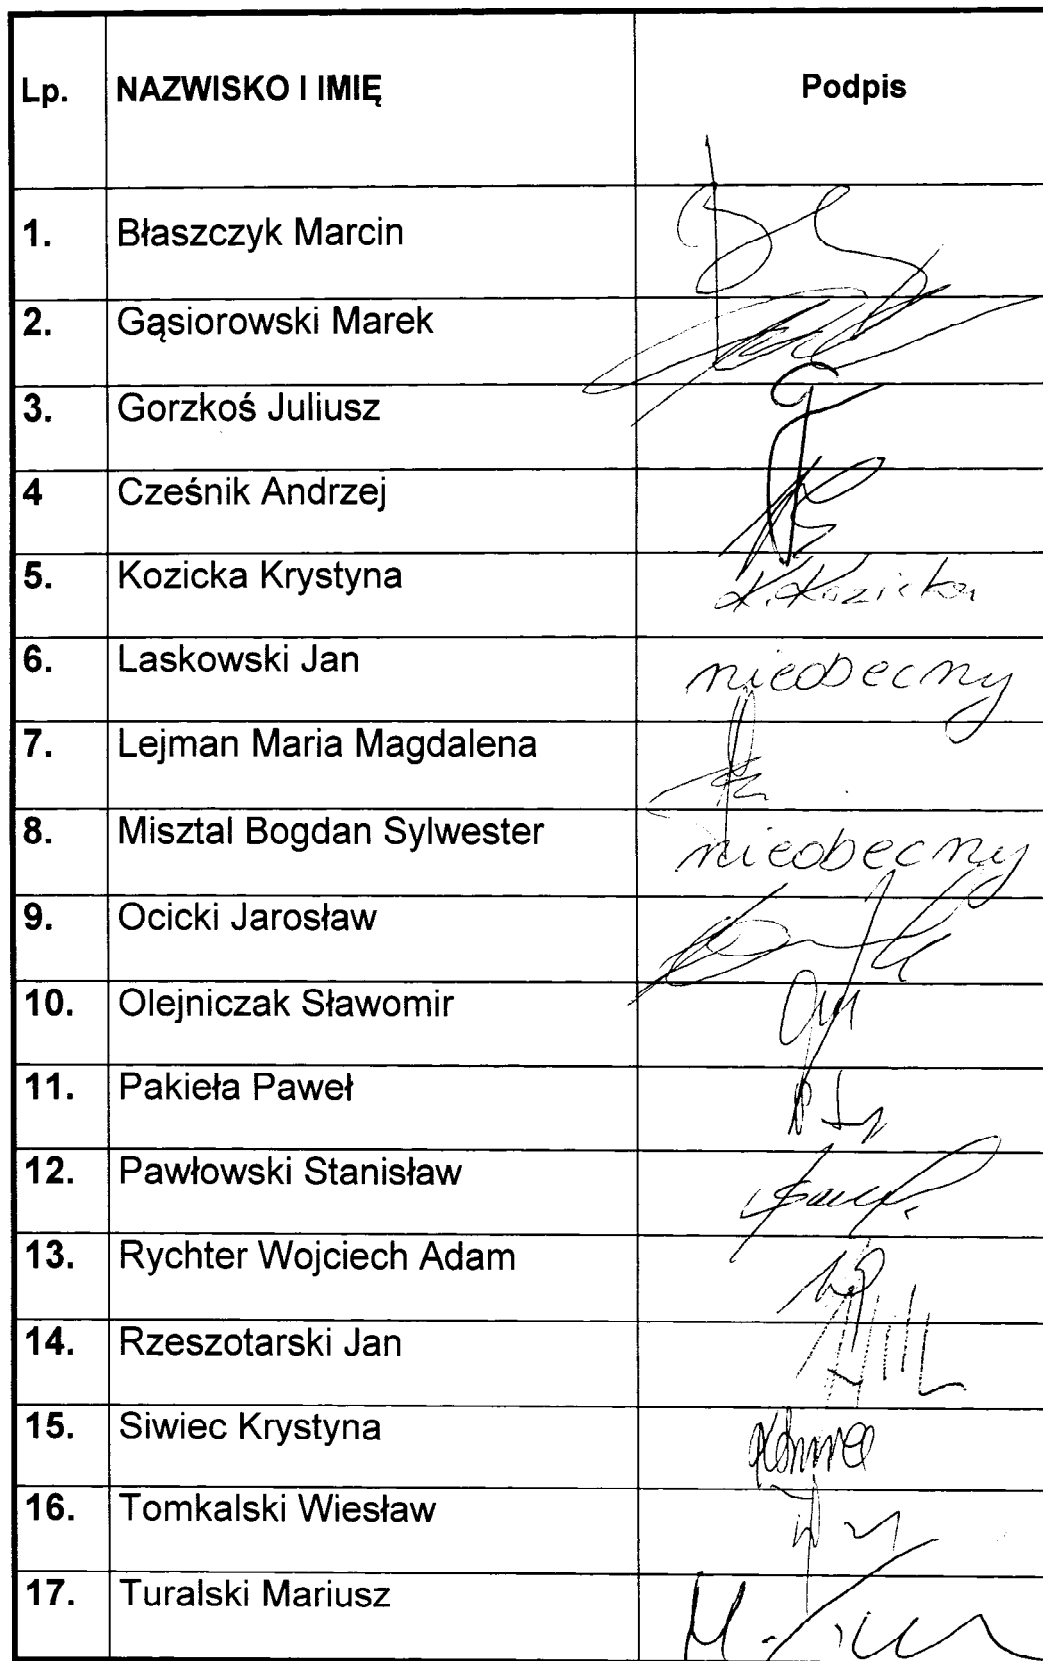 Lp. NAZWISKO I IMIĘ Podpis
1. Błaszczyk Marcin
2. Gąsiorowski Marek
3. Gorzkoś Juliusz
4 Cześnik Andrzej
5. Kozicka Krystyna K. Kozicka
6. Laskowski Jan nieobecny
7. Lejman Maria Magdalena
8. Misztal Bogdan Sylwester nieobecny
9. Ocicki Jarosław
10. Olejniczak Sławomir
11. Pakieła Paweł
12. Pawłowski Stanisław
13. Rychter Wojciech Adam
14. Rzeszotarski Jan
15. Siwiec Krystyna
16. Tomkalski Wiesław
17. Turalski Mariusz